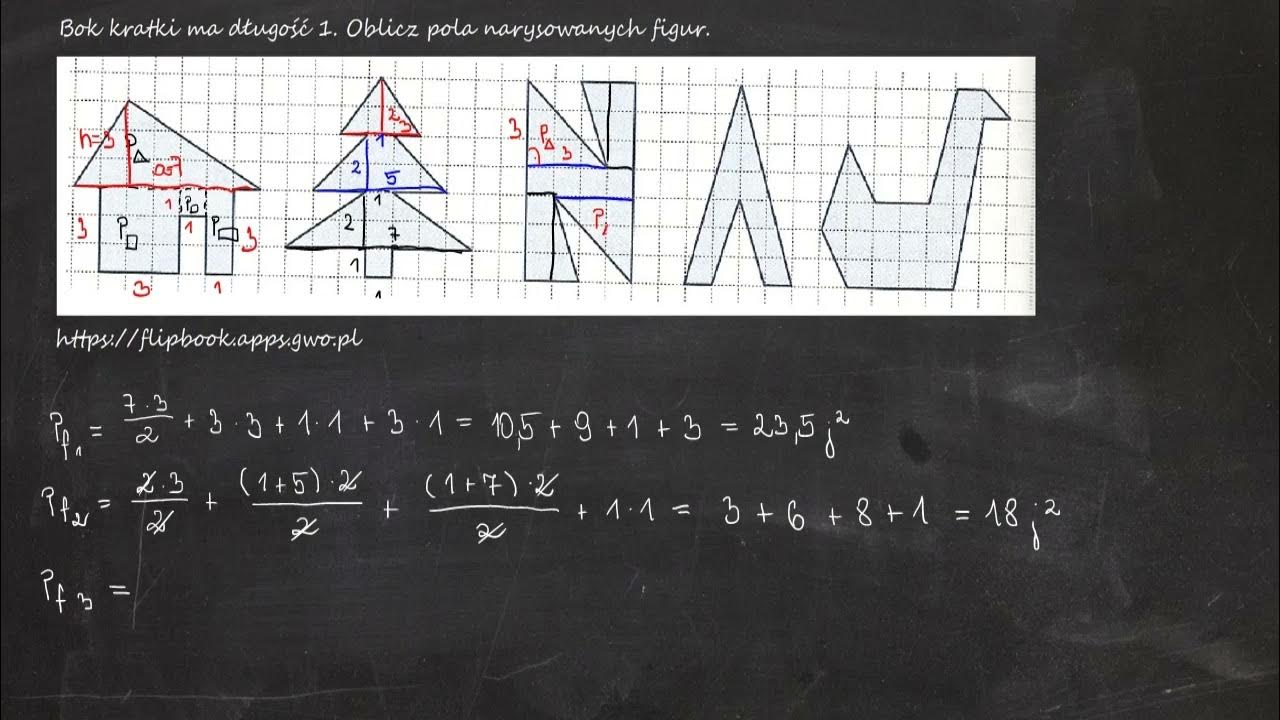 Bok kratki ma długość 1. Oblicz pola narysowanych figur.
h=3 P△
a=7
3 P□ 1 P□ 1 P▭ 3
3 1
2 3
1
2 5
1
2 7
1
1
3 P△ 3
P₂
https://flipbook.apps.gwo.pl
Pf₁ = 7·3/2 + 3·3 + 1·1 + 3·1 = 10,5 + 9 + 1 + 3 = 23,5 j²
Pf₂ = 2·3/2 + (1+5)·2/2 + (1+7)·2/2 + 1·1 = 3 + 6 + 8 + 1 = 18 j²
Pf₃ =